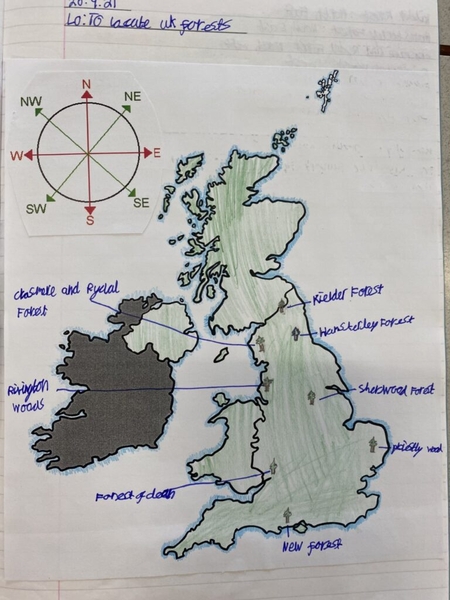 20.9.21
LO: TO Locate uk forests
N
NW
NE
W
E
SW
SE
S
Grasmere and Rydal
Forest
Kielder Forest
Hamsterley Forest
Rivington
Woods
Sherwood Forest
Priestly wood
Forest of dean
New Forest